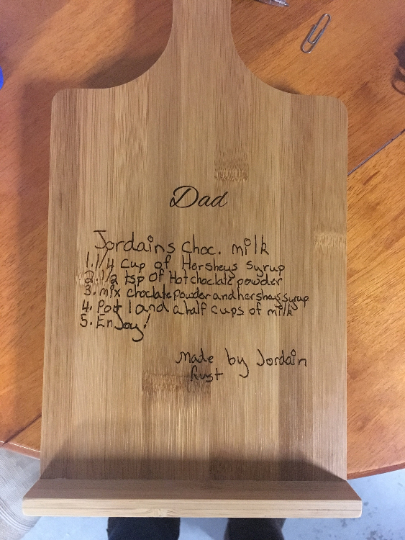 Dad
Jordains choc. milk
1. 1/4 cup of Hersheys syrup
2. 1/2 tsp of Hot choclate powder
3. mix choclate powder and hersheys syrup
4. Poor 1 and a half cups of milk
5. Enjoy!
Made by Jordain